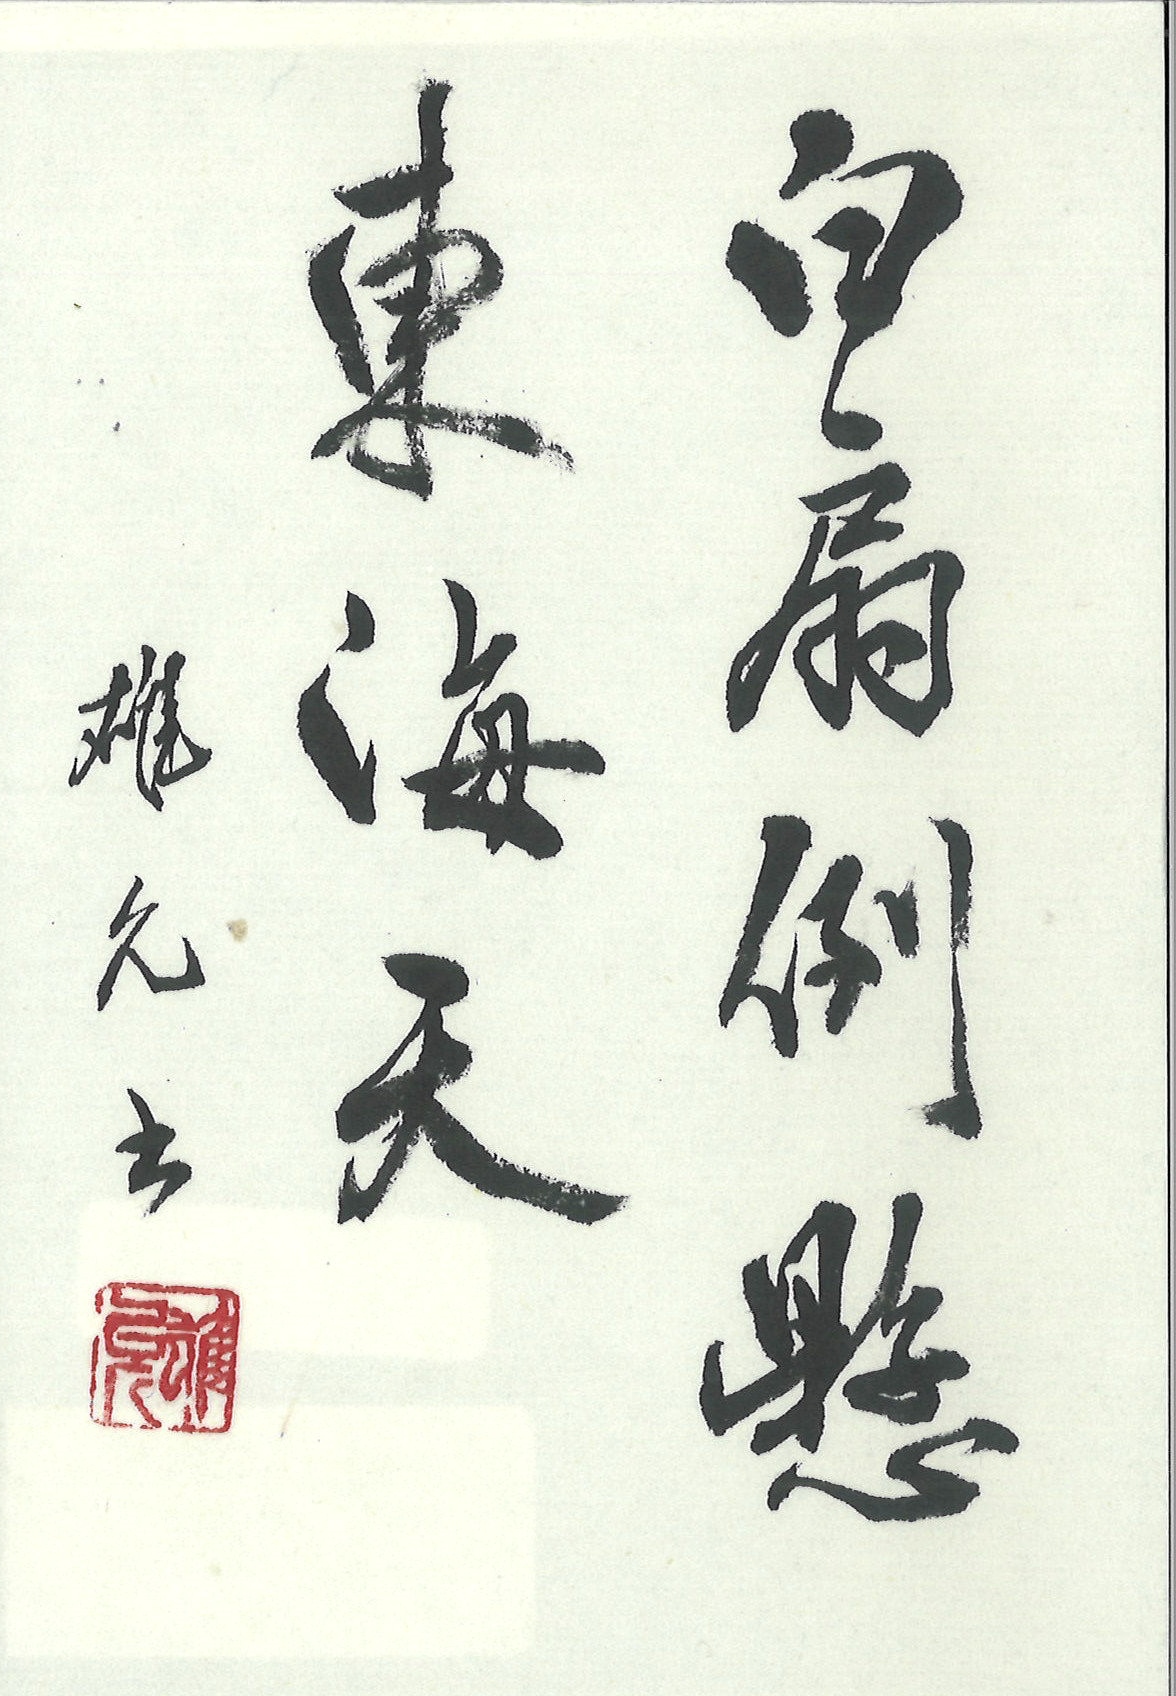 白扇倒懸
東海天
雄允書